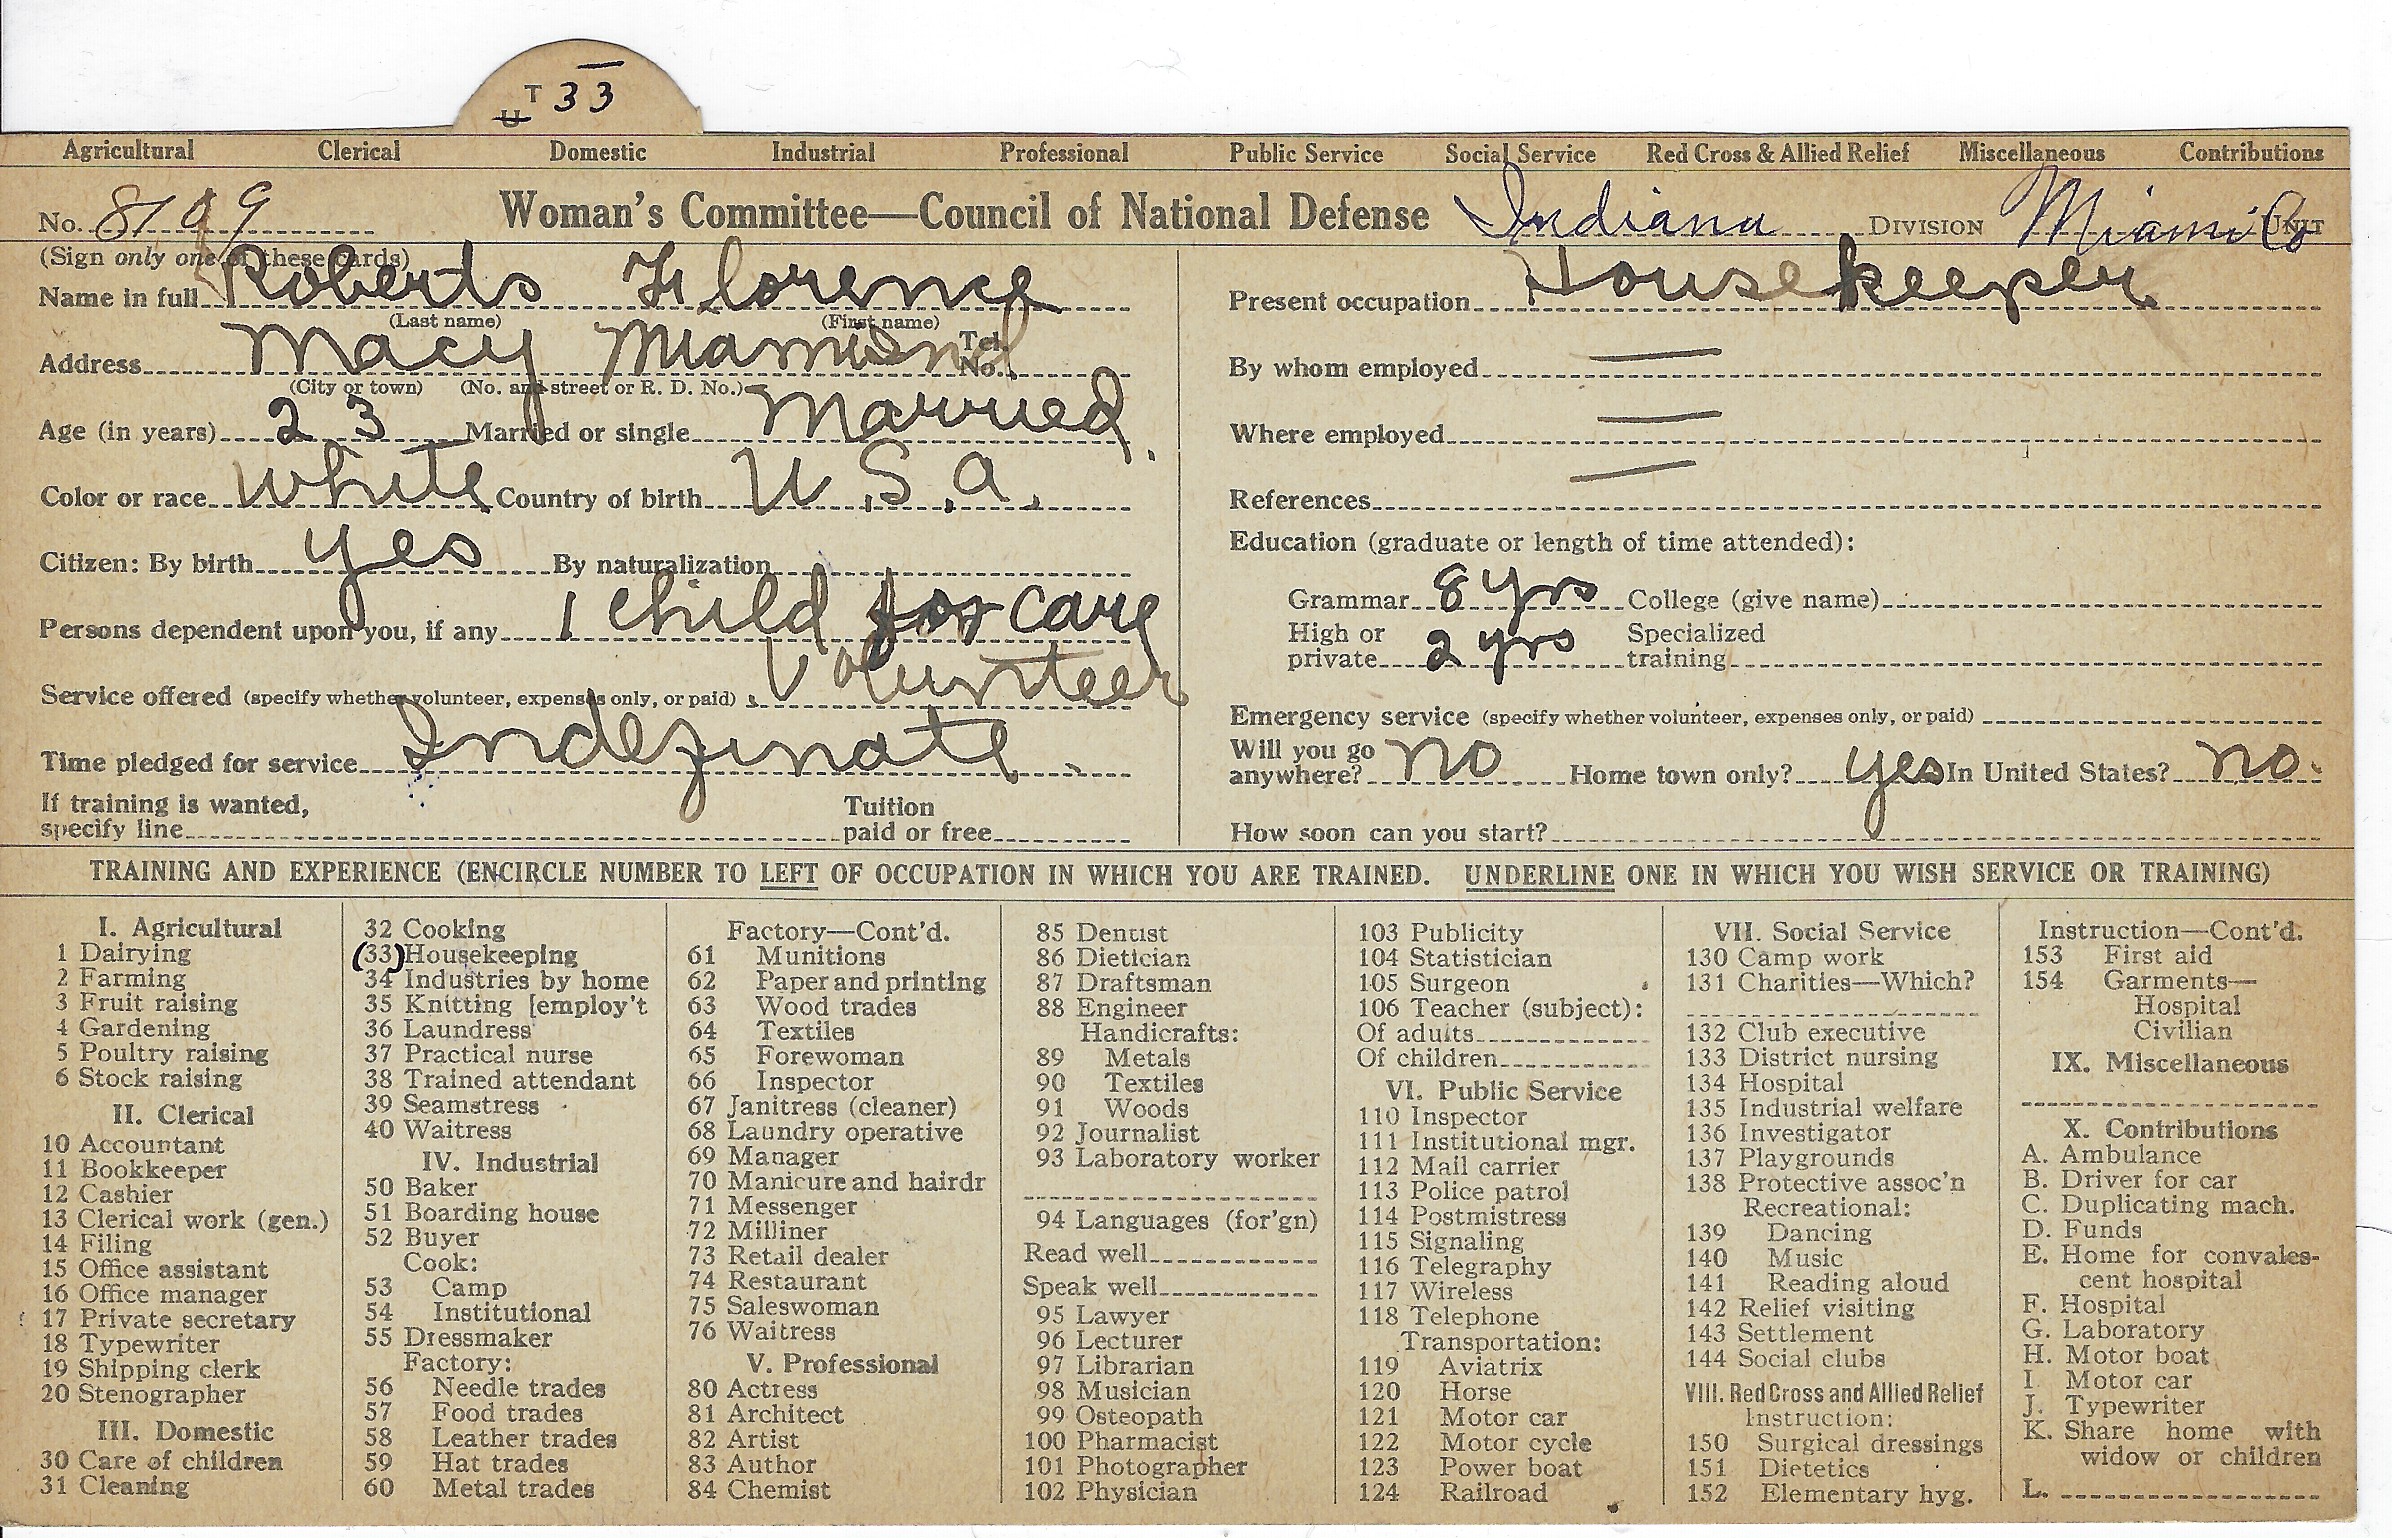 T 33
U
Agricultural Clerical Domestic Industrial Professional Public Service Social Service Red Cross & Allied Relief Miscellaneous Contributions
No. 8109 Woman's Committee—Council of National Defense Indiana DIVISION Miami Co UNIT
(Sign only one of these cards)
Name in full Roberts Florence
(Last name) (First name)
Address Macy Miami Ind Tel. No.
(City or town) (No. and street or R. D. No.)
Age (in years) 23 Married or single Married.
Color or race White Country of birth U.S.A.
Citizen: By birth yes By naturalization
Persons dependent upon you, if any 1 child for care
Service offered (specify whether volunteer, expenses only, or paid) Volunteer
Time pledged for service Indefinate
If training is wanted, specify line Tuition paid or free
Present occupation Housekeeper
By whom employed —
Where employed —
References —
Education (graduate or length of time attended):
Grammar 8 yrs College (give name)
High or private 2 yrs Specialized training
Emergency service (specify whether volunteer, expenses only, or paid)
Will you go anywhere? no Home town only? yes In United States? no.
How soon can you start?
TRAINING AND EXPERIENCE (ENCIRCLE NUMBER TO LEFT OF OCCUPATION IN WHICH YOU ARE TRAINED. UNDERLINE ONE IN WHICH YOU WISH SERVICE OR TRAINING)
I. Agricultural
1 Dairying
2 Farming
3 Fruit raising
4 Gardening
5 Poultry raising
6 Stock raising
II. Clerical
10 Accountant
11 Bookkeeper
12 Cashier
13 Clerical work (gen.)
14 Filing
15 Office assistant
16 Office manager
17 Private secretary
18 Typewriter
19 Shipping clerk
20 Stenographer
III. Domestic
30 Care of children
31 Cleaning
32 Cooking
(33) Housekeeping
34 Industries by home
35 Knitting [employ't
36 Laundress
37 Practical nurse
38 Trained attendant
39 Seamstress
40 Waitress
IV. Industrial
50 Baker
51 Boarding house
52 Buyer
Cook:
53 Camp
54 Institutional
55 Dressmaker
Factory:
56 Needle trades
57 Food trades
58 Leather trades
59 Hat trades
60 Metal trades
Factory—Cont'd.
61 Munitions
62 Paper and printing
63 Wood trades
64 Textiles
65 Forewoman
66 Inspector
67 Janitress (cleaner)
68 Laundry operative
69 Manager
70 Manicure and hairdr
71 Messenger
72 Milliner
73 Retail dealer
74 Restaurant
75 Saleswoman
76 Waitress
V. Professional
80 Actress
81 Architect
82 Artist
83 Author
84 Chemist
85 Dentist
86 Dietician
87 Draftsman
88 Engineer
Handicrafts:
89 Metals
90 Textiles
91 Woods
92 Journalist
93 Laboratory worker
94 Languages (for'gn)
Read well
Speak well
95 Lawyer
96 Lecturer
97 Librarian
98 Musician
99 Osteopath
100 Pharmacist
101 Photographer
102 Physician
103 Publicity
104 Statistician
105 Surgeon
106 Teacher (subject):
Of adults
Of children
VI. Public Service
110 Inspector
111 Institutional mgr.
112 Mail carrier
113 Police patrol
114 Postmistress
115 Signaling
116 Telegraphy
117 Wireless
118 Telephone
Transportation:
119 Aviatrix
120 Horse
121 Motor car
122 Motor cycle
123 Power boat
124 Railroad
VII. Social Service
130 Camp work
131 Charities—Which?
132 Club executive
133 District nursing
134 Hospital
135 Industrial welfare
136 Investigator
137 Playgrounds
138 Protective assoc'n
Recreational:
139 Dancing
140 Music
141 Reading aloud
142 Relief visiting
143 Settlement
144 Social clubs
VIII. Red Cross and Allied Relief
Instruction:
150 Surgical dressings
151 Dietetics
152 Elementary hyg.
Instruction—Cont'd.
153 First aid
154 Garments—
Hospital
Civilian
IX. Miscellaneous
X. Contributions
A. Ambulance
B. Driver for car
C. Duplicating mach.
D. Funds
E. Home for convales-
cent hospital
F. Hospital
G. Laboratory
H. Motor boat
I Motor car
J. Typewriter
K. Share home with
widow or children
L.